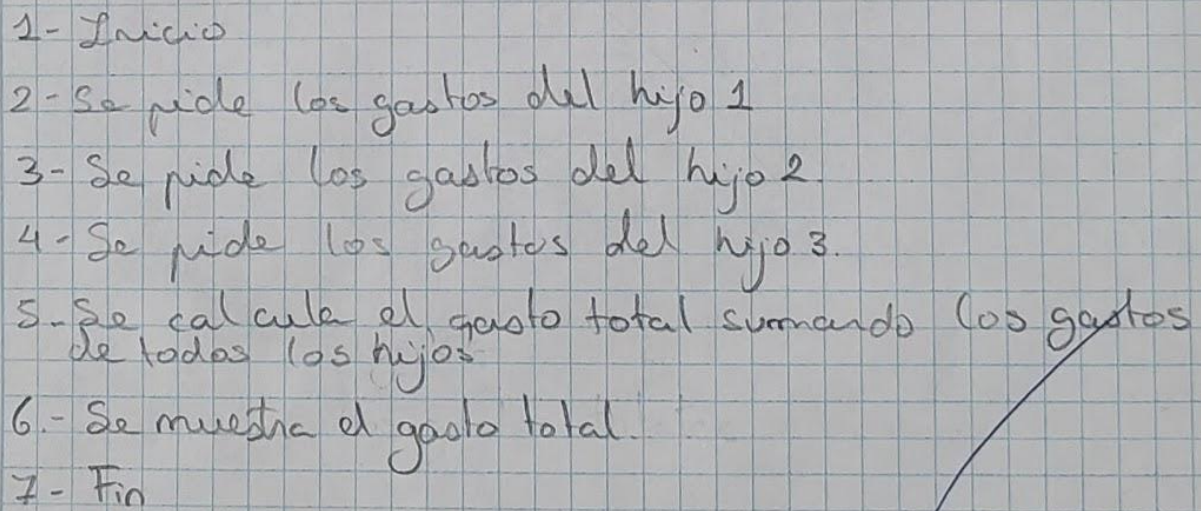 1- Inicio
2- Se pide los gastos del hijo 1
3- Se pide los gastos del hijo 2.
4- Se pide los gastos del hijo 3.
5- Se calcula el gasto total sumando los gastos
de todos los hijos
6.- Se muestra el gasto total.
7- Fin